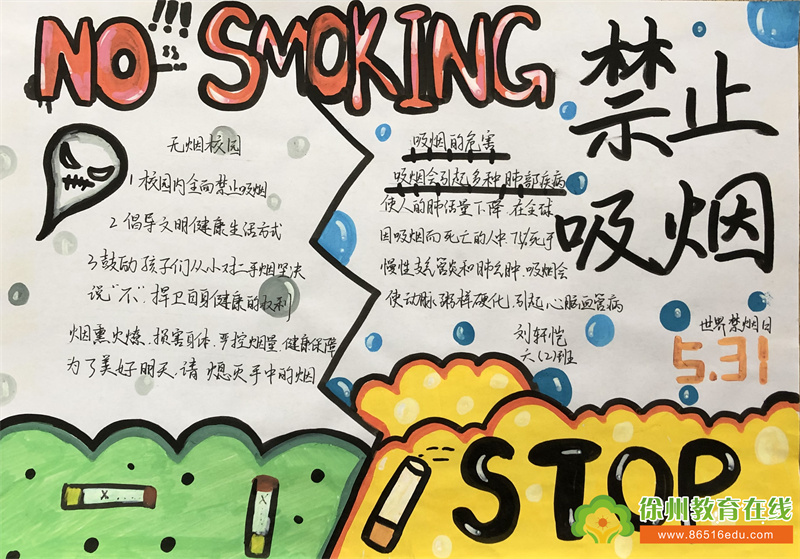 NO SMOKING
!!!
禁止
吸烟
无烟校园
1.校园内全面禁止吸烟
2.倡导文明健康生活方式
3.鼓励孩子们从小对二手烟坚决
说“不”.捍卫自身健康的权利
烟熏火燎.损害身体.严控烟量.健康保障
为了美好明天.请熄灭手中的烟
吸烟的危害
吸烟会引起多种肺部疾病
使人的肺活量下降.在全球
因吸烟而死亡的人中75%死于
慢性支气管炎和肺气肿.吸烟会
使动脉粥样硬化.引起心脑血管病
刘轩恺
六(2)班
世界禁烟日
5.31
STOP
徐州教育在线
www.86516edu.com